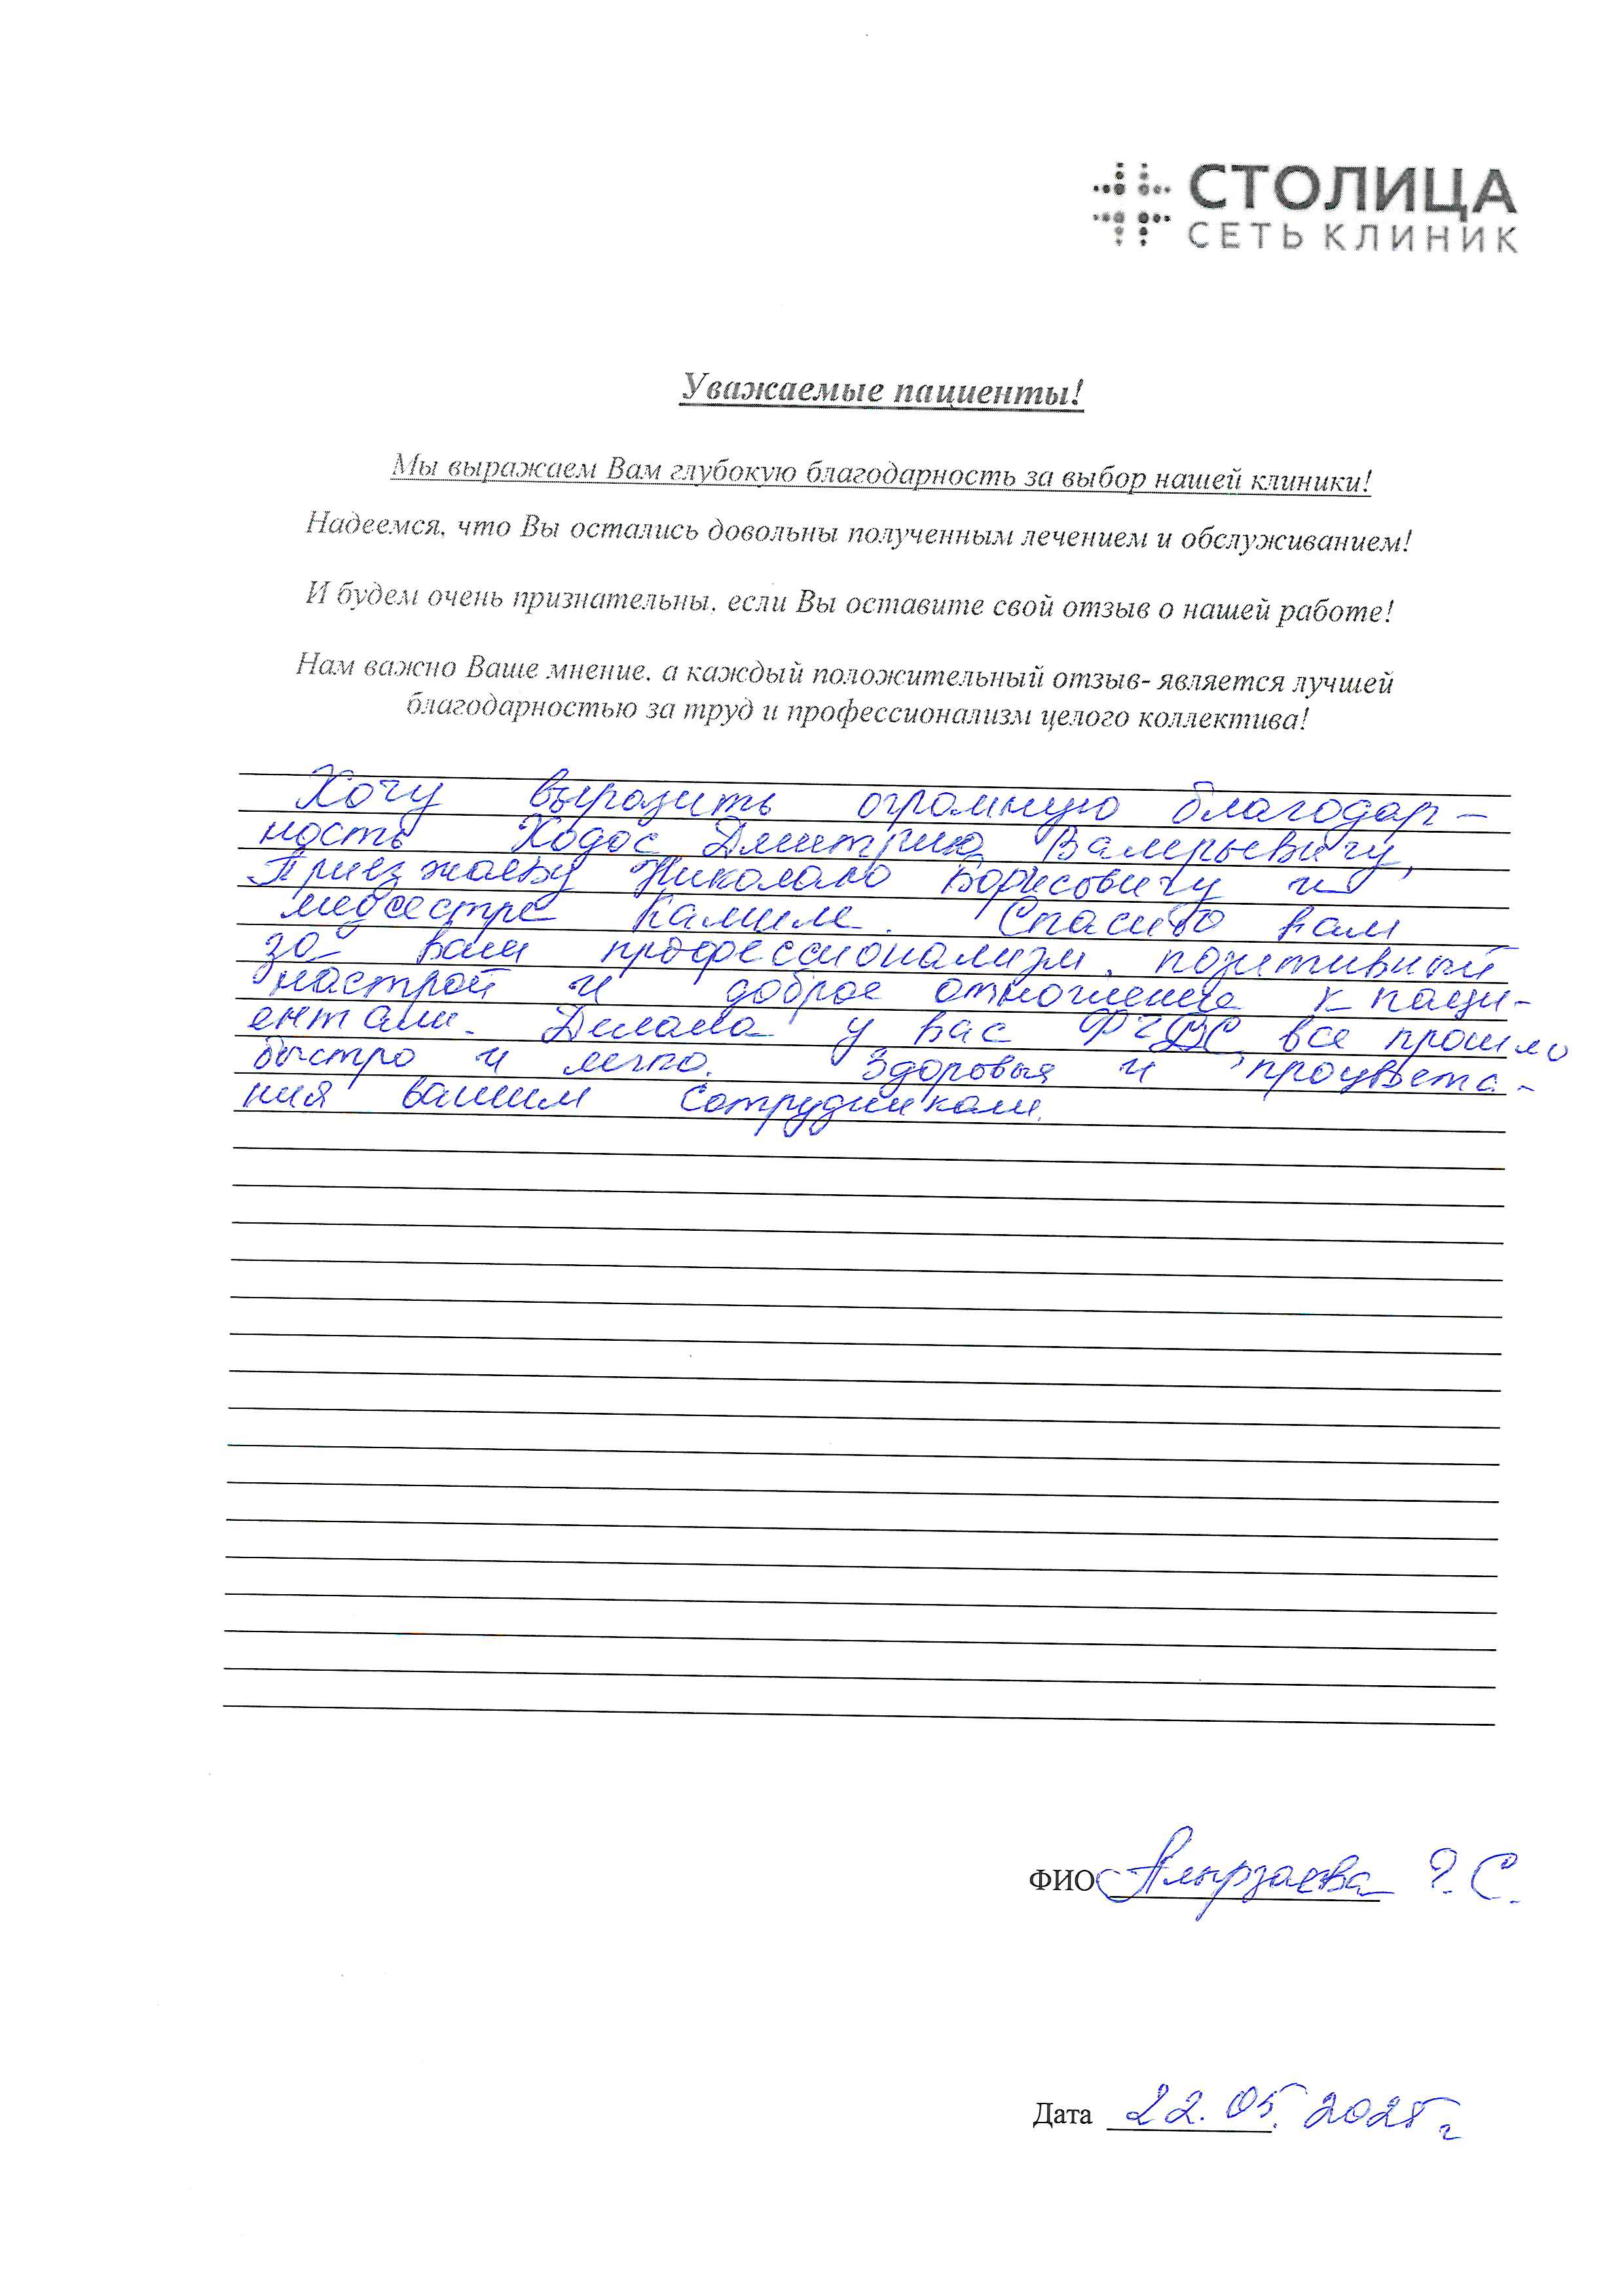 СТОЛИЦА
СЕТЬ КЛИНИК
Уважаемые пациенты!
Мы выражаем Вам глубокую благодарность за выбор нашей клиники!
Надеемся, что Вы остались довольны полученным лечением и обслуживанием!
И будем очень признательны, если Вы оставите свой отзыв о нашей работе!
Нам важно Ваше мнение, а каждый положительный отзыв- является лучшей
благодарностью за труд и профессионализм целого коллектива!
Хочу выразить огромную благодар-
ность Ходос Дмитрию Валерьевичу,
Приезжаеву Николаю Борисовичу и
медсестре Камиле. Спасибо вам
за ваш профессионализм, позитивный
настрой и доброе отношение к паци-
ентами. Делала у вас ФГДС, все прошло
быстро и легко. Здоровья и процвета-
ния вашим сотрудникам.
ФИО Мырзаева С.
Дата 22.05.2025г